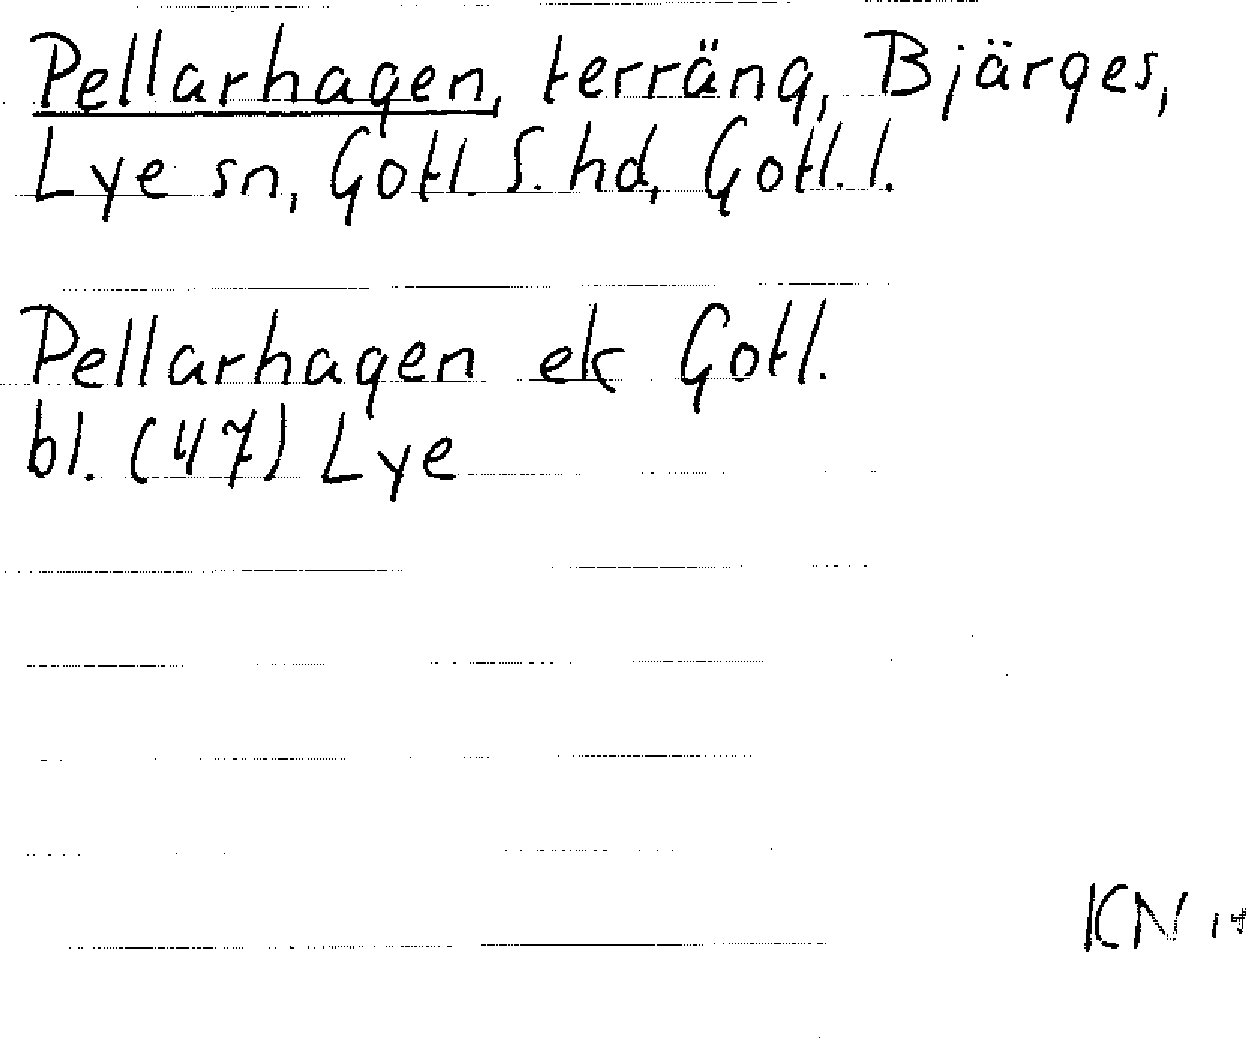 Pellarhagen, terräng, Bjärges,
Lye sn, Gotl. S. hd, Gotl. l.
Pellarhagen ek Gotl.
bl. (47) Lye
KN